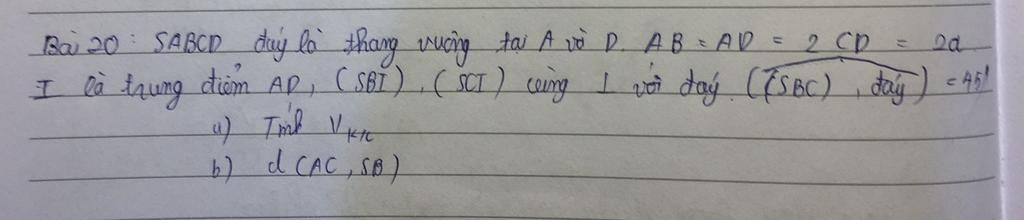 Bài 20: SABCD đáy là thang vuông tại A và D. AB = AD = 2 CD = 2a
I là trung điểm AD, (SBI), (SCI) cùng ⊥ với đáy. ((SBC), đáy) = 45°
a) Tính V
b) d(AC, SB)